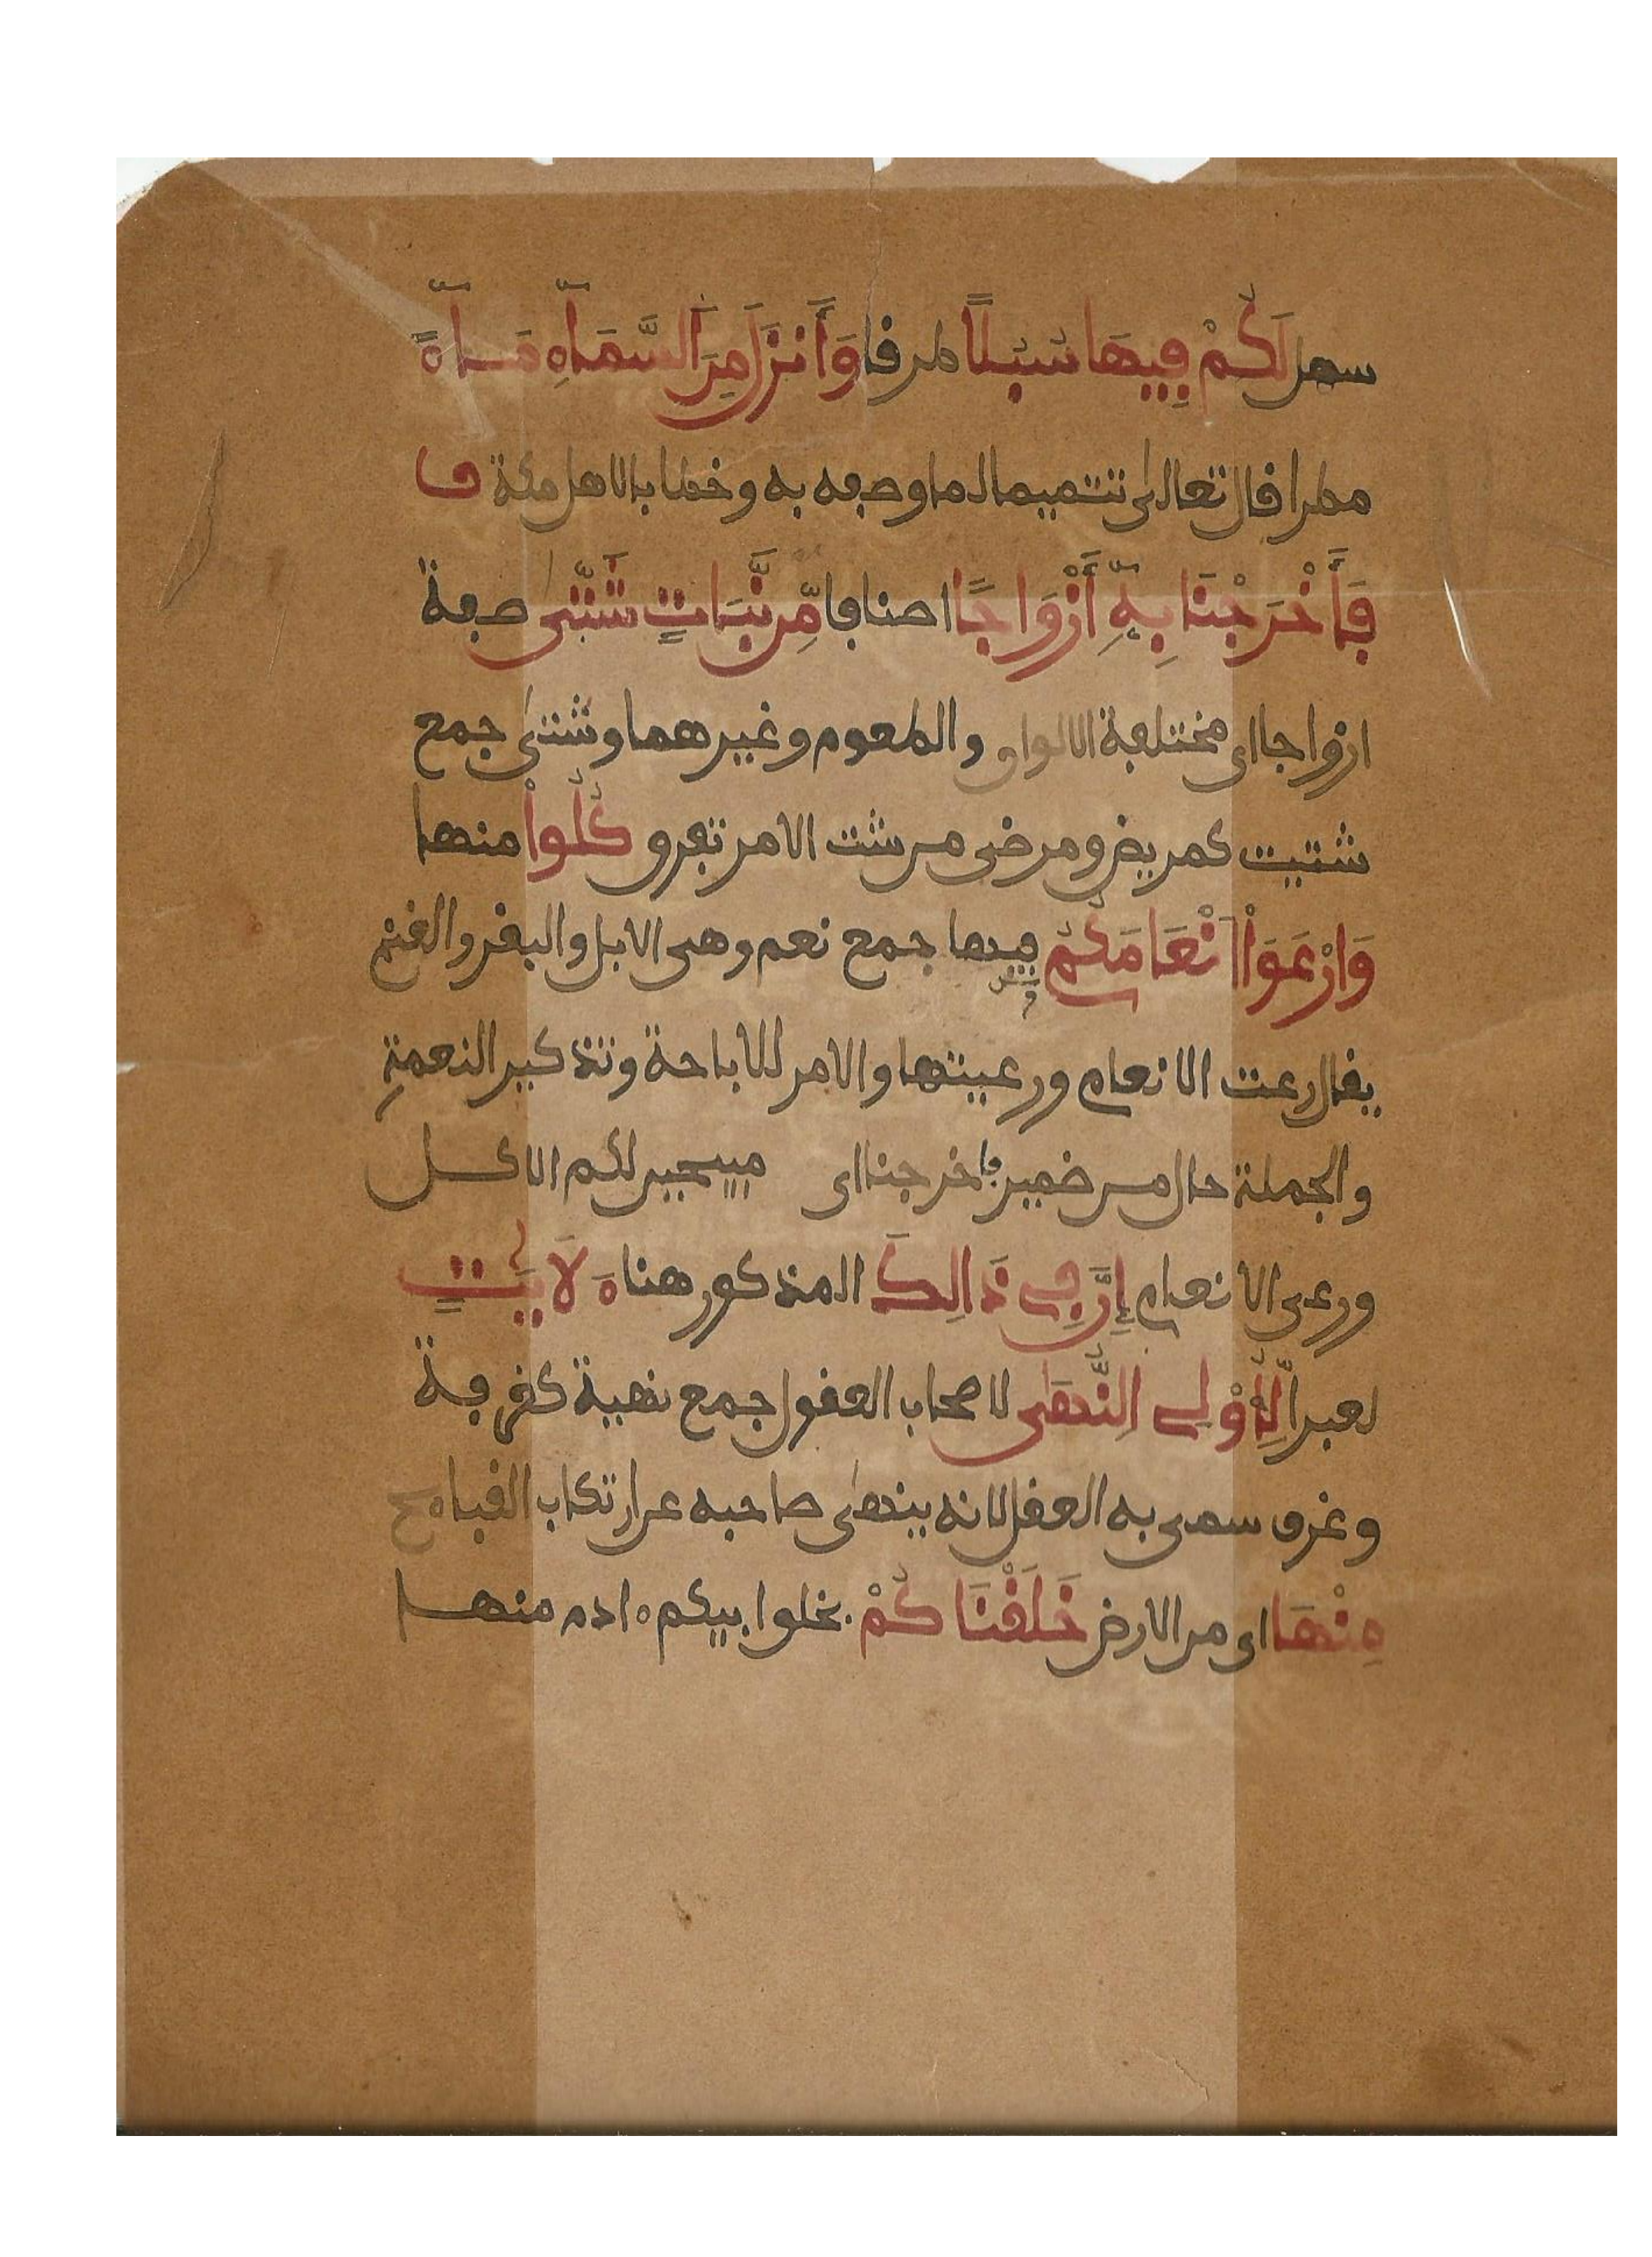 سهل لَكُمْ فِيهَا سُبُلًا طرفا وَأَنزَلَ مِنَ السَّمَآءِ مَآءً
مطرا قال تعالى تتميما لما وصفه به وخطابا لاهل مكة ف
فَأَخْرَجْنَا بِهِۦٓ أَزْوَاجًا اصنافا مِّن نَّبَاتٍ شَتّىٰ صفة
ازواجا اى مختلفة الالوان والطعوم وغيرهما وشتى جمع
شتيت كمريض ومرضى من شت الامر تفرق كُلُوا منها
وَارْعَوْا أَنْعَامَكُمْ فيها جمع نعم وهى الابل والبقر والغنم
يقال رعت الانعام ورعيتها والامر للاباحة وتذكير النعمةِ
والجملة حال من ضمير فاخرجنا اى مبيحين لكم الاكل
ورعى الانعام إِنَّ فِى ذَالِكَ المذكور هنا ءَلَايَٰتٍ
لعبرا لِّأُوْلِى النُّهَىٰ لاصحاب العقول جمع نهية كغرفة
وغرف سمى به العقل لانه ينهىٰ صاحبه عن ارتكاب القباءح
مِنْهَا اى من الارض خَلَقْنَاكُمْ بخلق ابيكم ءادم منها